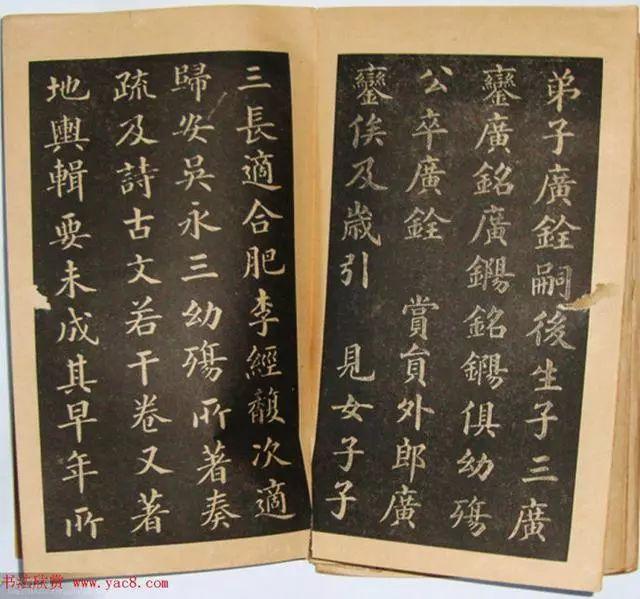 弟子廣銓嗣後生子三廣
鑾廣銘廣鐊銘鐊俱幼殤
公卒廣銓 賞員外郎廣
鑾俟及歲引 見女子子
三長適合肥李經馥次適
歸安吳永三幼殤所著奏
疏及詩古文若干卷又著
地輿輯要未成其早年所
书法欣赏 www.yac8.com